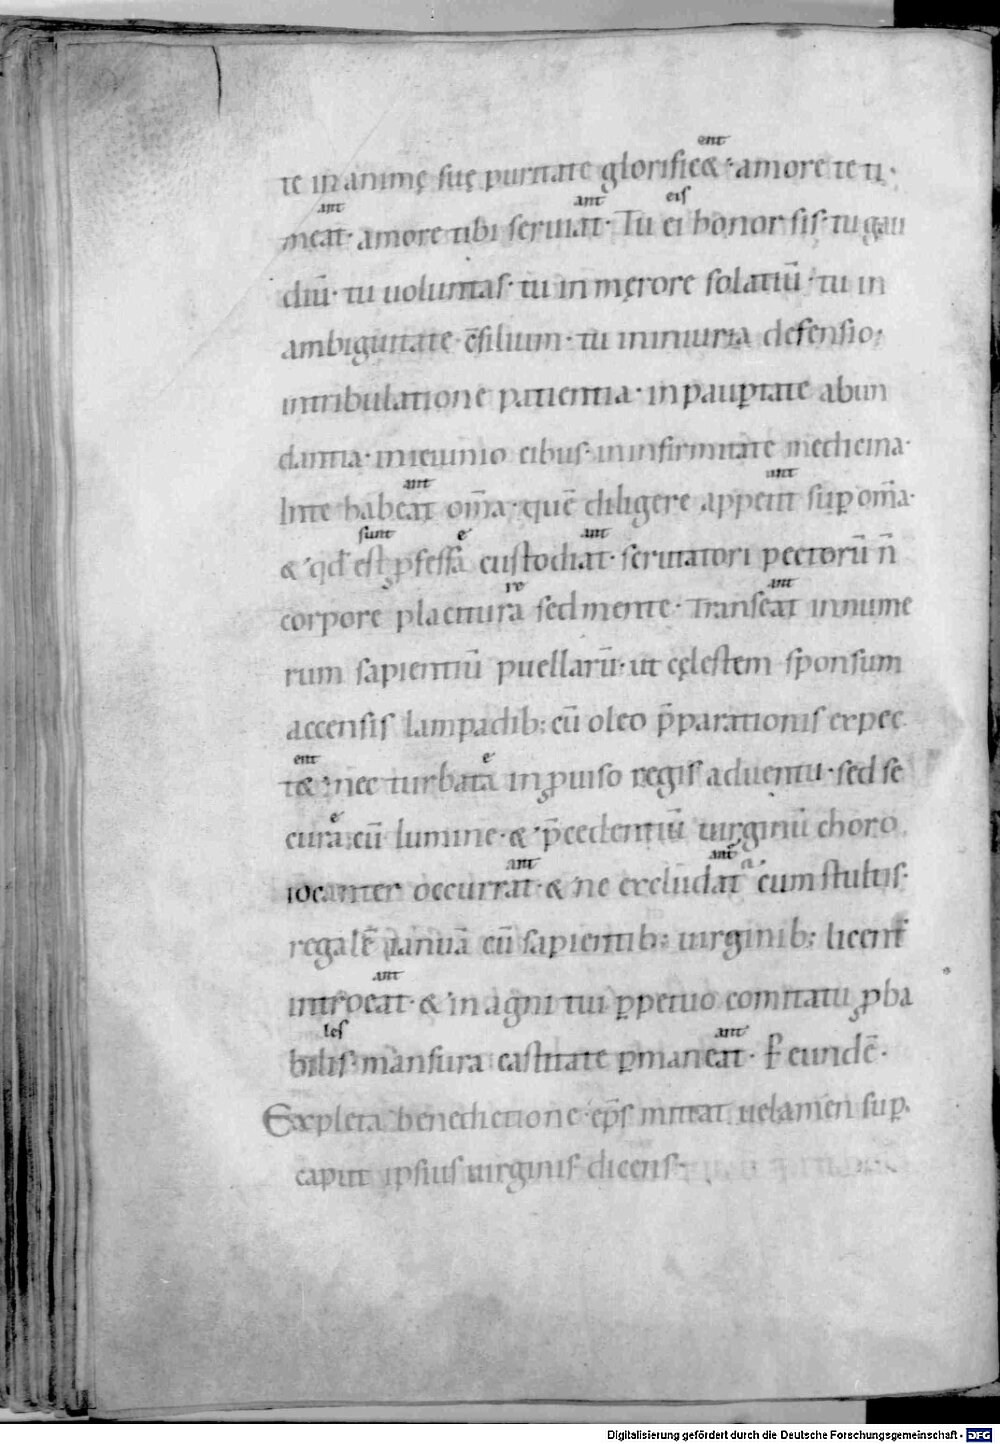 ent
te in animę suę puritate glorific&· amore te ti·
ant ant eis
meat· amore tibi seruiat· Tu ei honor sis· tu gau
diū· tu uoluntas· tu in męrore solatiū· tu in
ambiguitate c̄silium· tu ininiuria defensio·
intribulatione patientia· inpaup̱tate abun
dantia· inieiunio cibus· ininfirmitate medicina·
ant ant
Inte habeat om̄a· quē diligere appetit sup̱ om̄a·
sunt e ant
& qd̄ est ꝓfessa custodiat· scrutatori pectorū n̄
re ant
corpore placitura sed mente· Transeat innume
rum sapientiū puellarū· ut cęlestem sponsum
accensis lampadib; cū oleo p̄parationis expec
ent e
t&· nec turbata inꝓuiso regis aduentu· sed se
e
cura cū lumine· & p̄cedentiū uirginū choro
ant ant a
iocanter occurrat· & ne excludat cum stultis·
regalē ianuā cū sapientib; uirginib; licent̄
ant
introeat· & in agni tui p̱petuo comitatu ꝓba
les ant
bilis· mansura castitate p̱maneat· P̱ eundē·
Expleta benedictione· ep̄s mittat uelamen sup̱·
caput ipsius uirginis dicens·
Digitalisierung gefördert durch die Deutsche Forschungsgemeinschaft - DFG